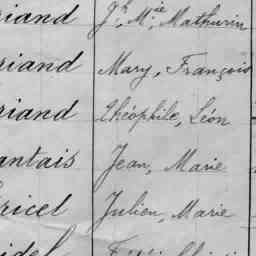 riand Jh Mie Mathurin
riand Mary, François
riand Théophile, Léon
antais Jean, Marie
ricel Julien, Marie